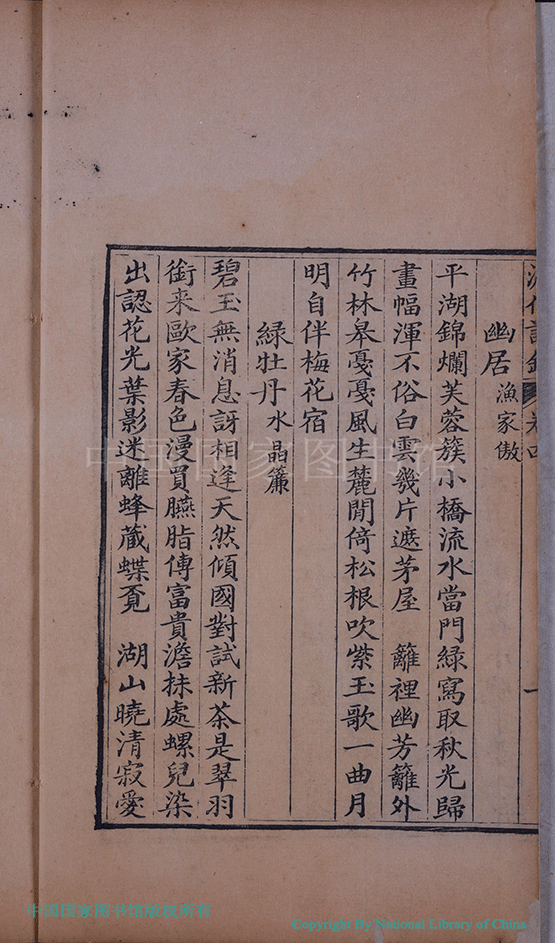 幽居漁家傲
平湖錦爛芙蓉簇小橋流水當門綠寫取秋光歸
畫幅渾不俗白雲幾片遮茅屋　籬裡幽芳籬外
竹林皋戛戛風生麓閒倚松根吹紫玉歌一曲月
明自伴梅花宿
緑牡丹水晶簾
碧玉無消息訝相逢天然傾國對試新茶是翠羽
銜来歐家春色漫買臙脂傳富貴澹抹處螺兒染
出認花光葉影迷離蜂蔵蝶覔　湖山曉清寂愛
中国国家图书馆
中国国家图书馆版权所有
Copyright By National Library of China